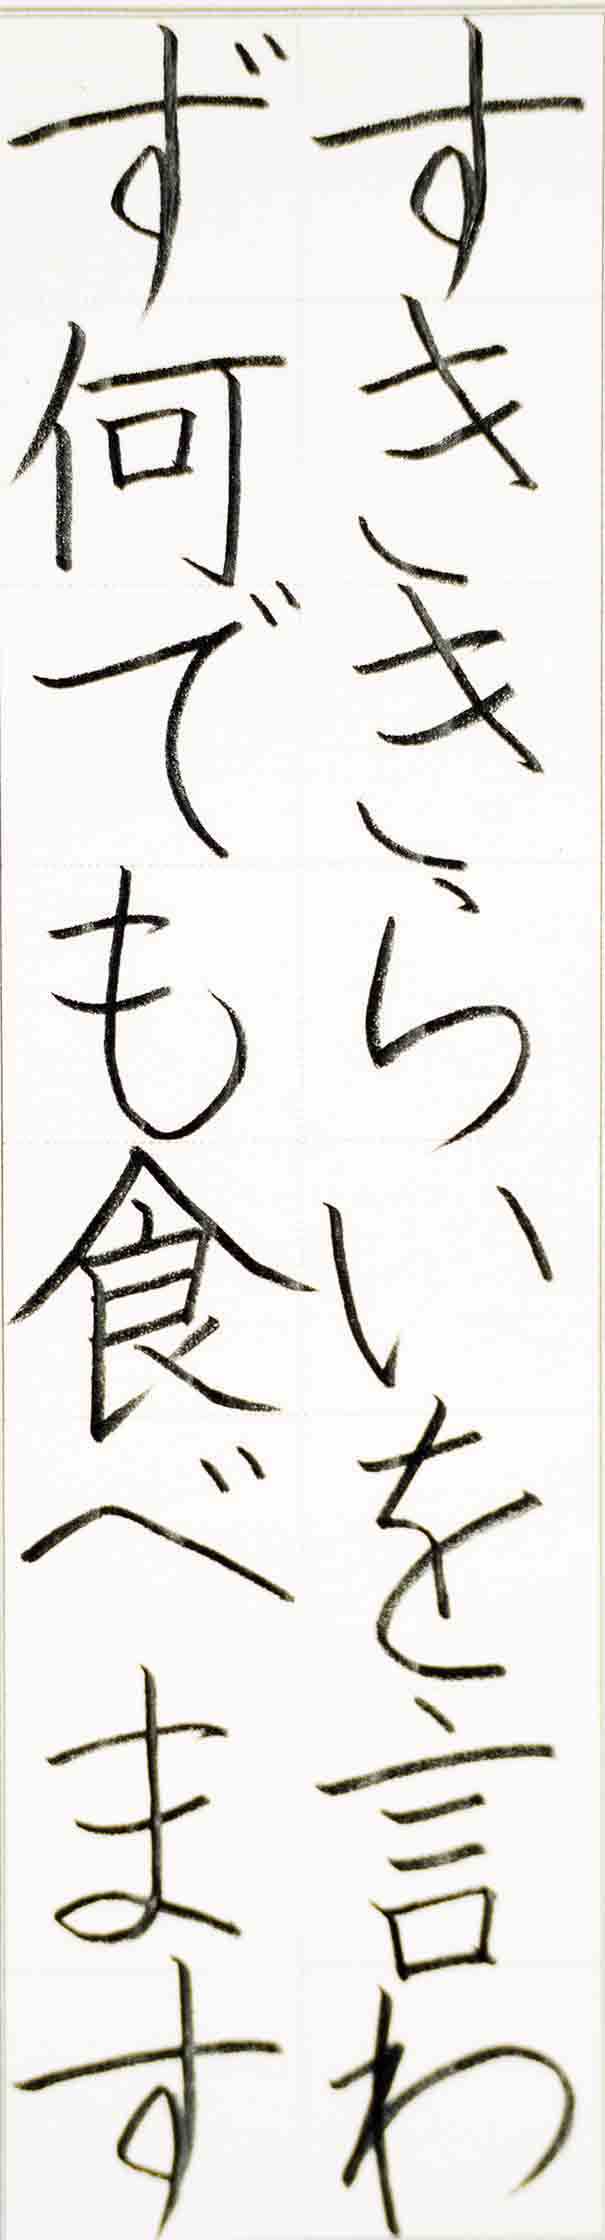 すききらいを言わ
ず何でも食べます